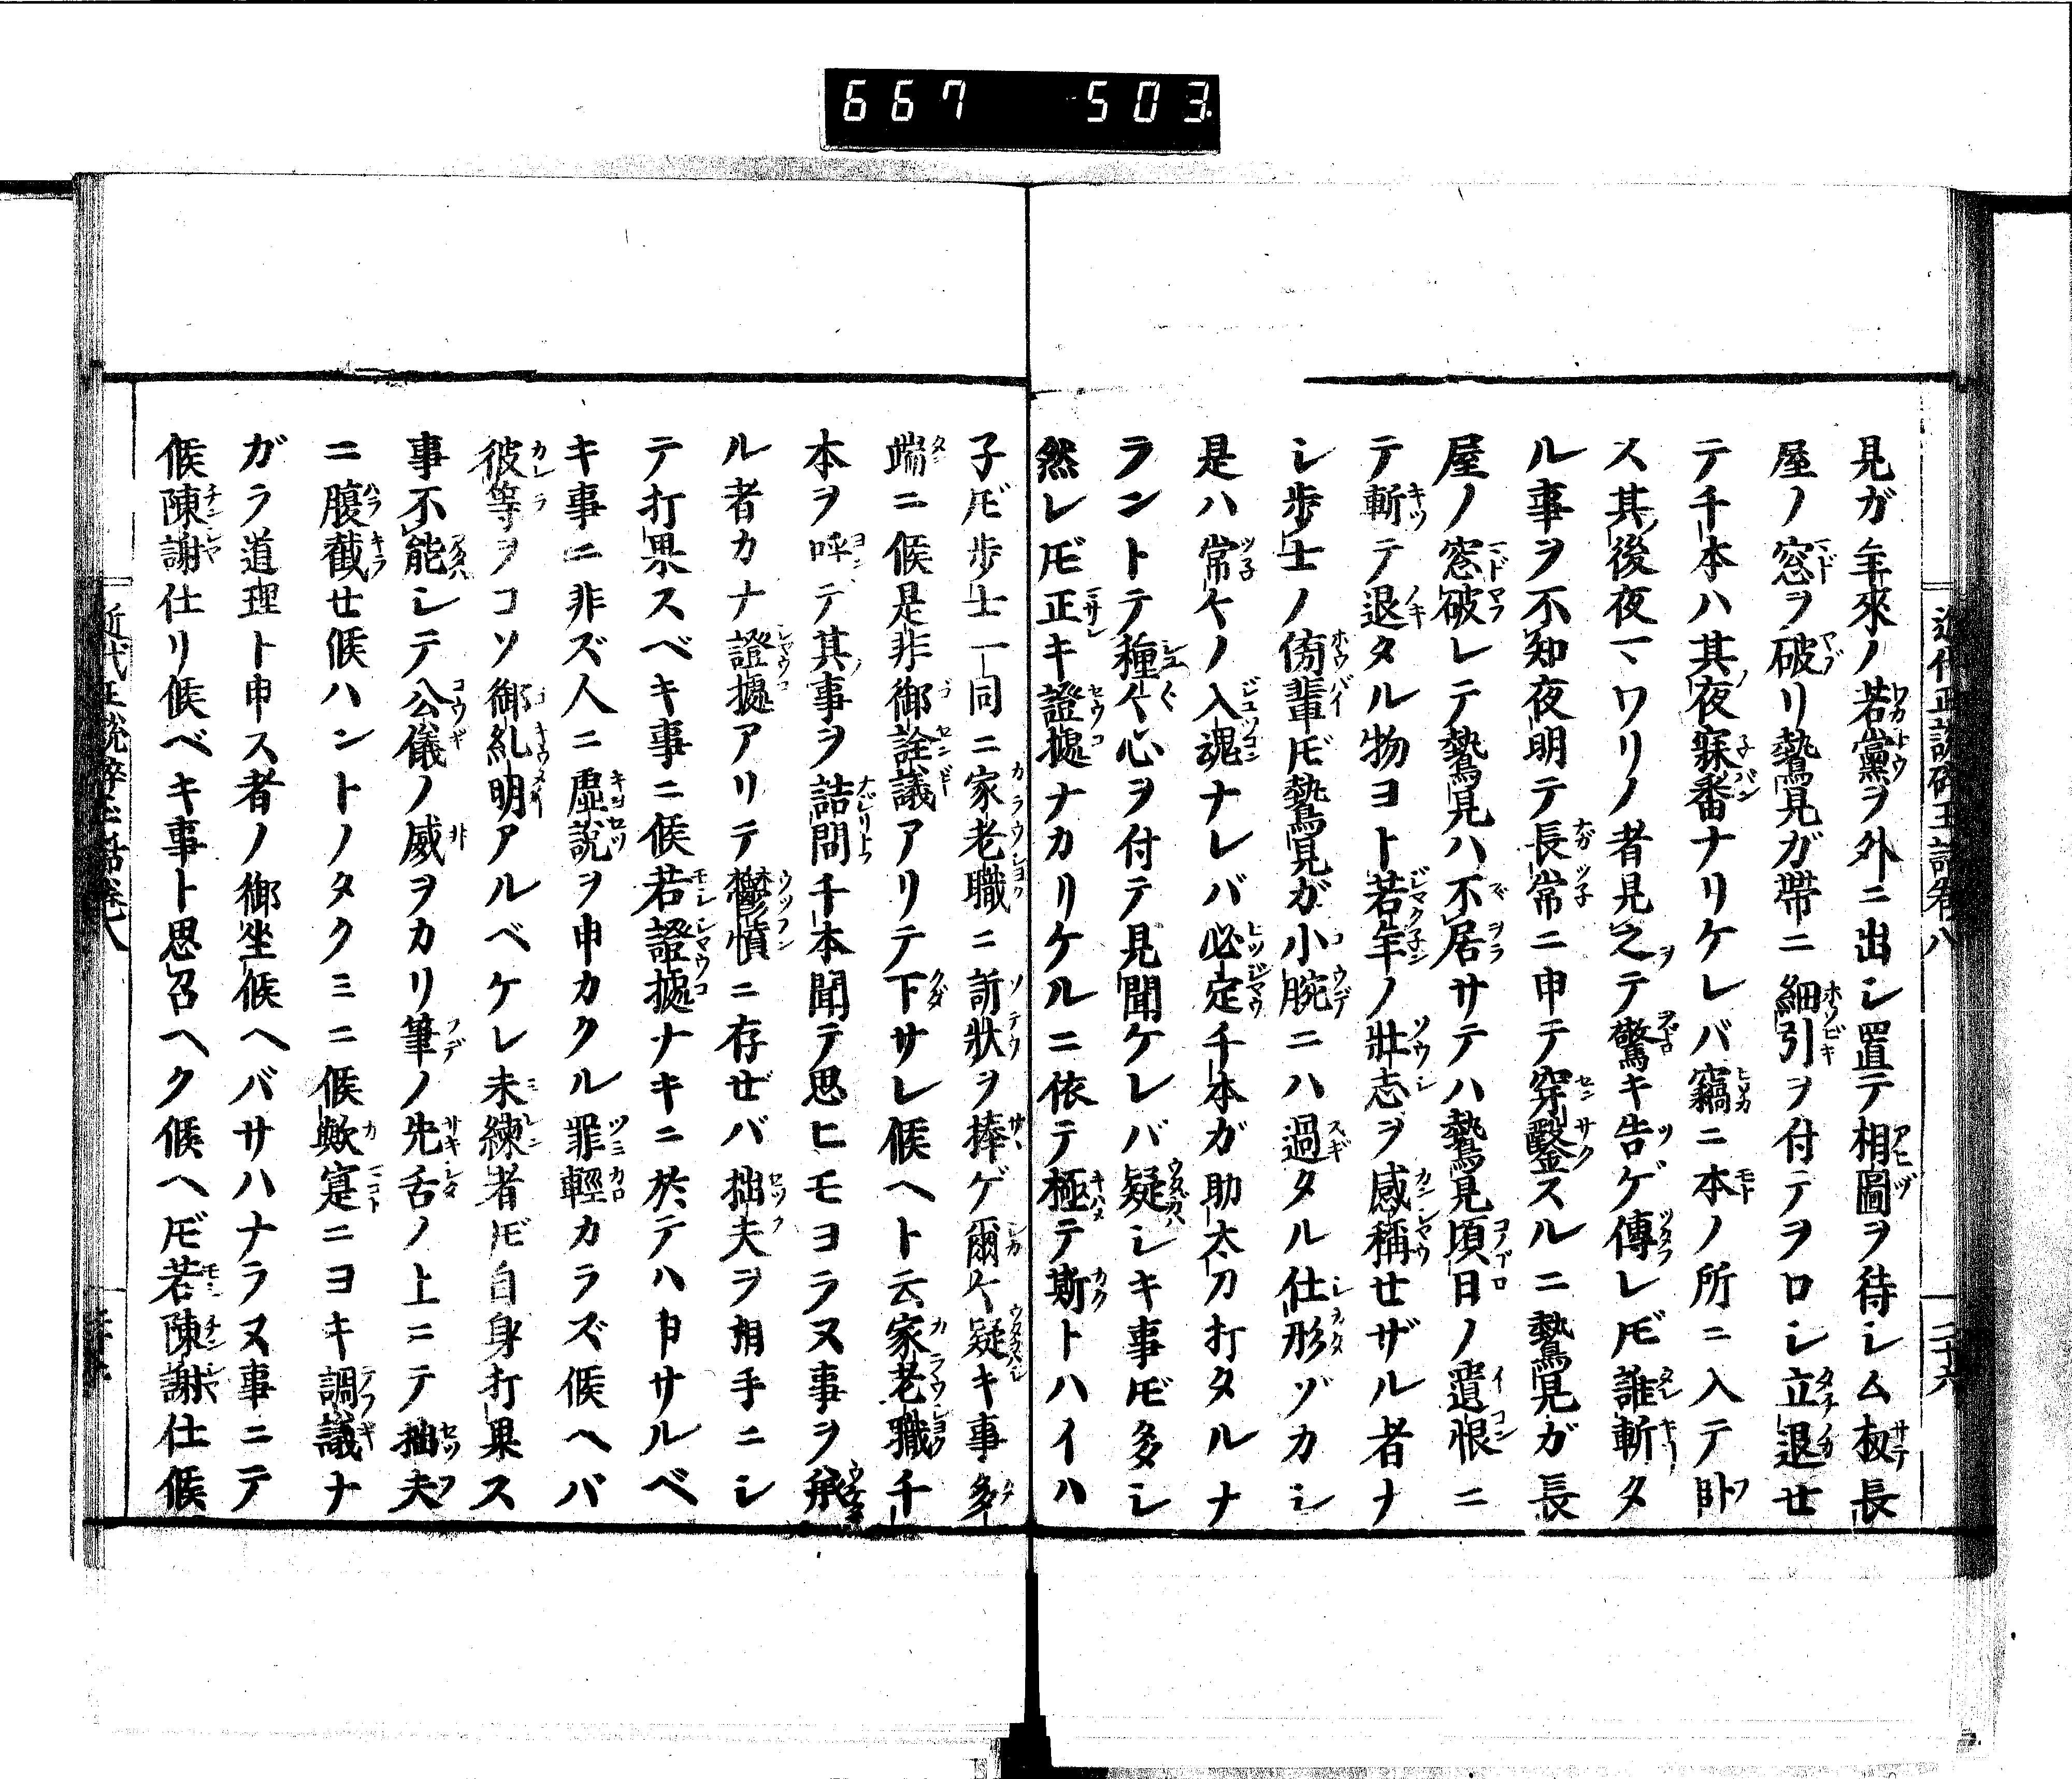 667 503
見ガ年來ノ若黨ヲ外ニ出シ置テ相圖ヲ待シム扨長
屋ノ窓ヲ破リ鷙見ガ帶ニ細引ヲ付テヲロシ立退せ
テ千本ハ其夜寐番ナリケレバ竊ニ本ノ所ニ入テ臥
ス其後夜マワリノ者見之テ驚キ告ゲ傳レ𪜈誰斬タ
ル事ヲ不知夜明テ長常ニ申テ穿鑿スルニ鷙見ガ長
屋ノ窓破レテ鷙見ハ不居サテハ鷙見頃日ノ遺恨ニ
テ斬テ退タル物ヨト若年ノ壯志ヲ感稱せザル者ナ
シ歩士ノ傍輩𪜈鷙見ガ小腕ニハ過タル仕形ゾカシ
是ハ常々ノ入魂ナレバ必定千本ガ助太刀打タルナ
ラントテ種々心ヲ付テ見聞ケレバ疑シキ事𪜈多シ
然レ𪜈正キ證據ナカリケルニ依テ極テ斯トハイハ
子𪜈歩士一同ニ家老職ニ訴狀ヲ捧ゲ爾々疑キ事多
端ニ候是非御詮議アリテ下サレ候ヘト云家老職千
本ヲ呼テ其事ヲ詰問千本聞テ思ヒモヨラヌ事ヲ承
ル者カナ證據アリテ鬱憤ニ存ぜバ拙夫ヲ相手ニシ
テ打果スベキ事ニ候若證據ナキニ於テハ申サルベ
キ事ニ非ズ人ニ虛說ヲ申カクル罪輕カラズ候ヘバ
彼等ヲコソ御糺明アルベケレ未練者𪜈自身打果ス
事不能シテ公儀ノ威ヲカリ筆ノ先舌ノ上ニテ拙夫
ニ腹截せ候ハントノタクミニ候歟寔ニヨキ調議ナ
ガラ道理ト申ス者ノ御坐候ヘバサハナラヌ事ニテ
候陳謝仕リ候ベキ事ト思召ヘク候ヘ𪜈若陳謝仕候